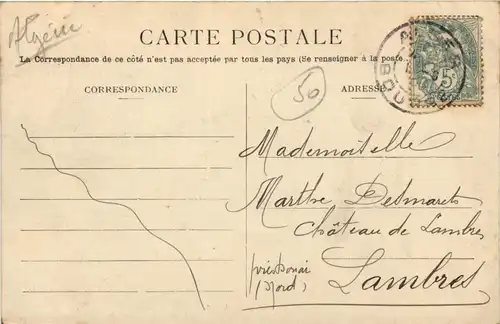 Algérie
CARTE POSTALE
La Correspondance de ce côté n'est pas acceptée par tous les pays (Se renseigner à la poste
CORRESPONDANCE
50
ADRESSE
5
Mademoiselle
Marthe Desmarets
Château de Lambres
Lambres
(Nord)